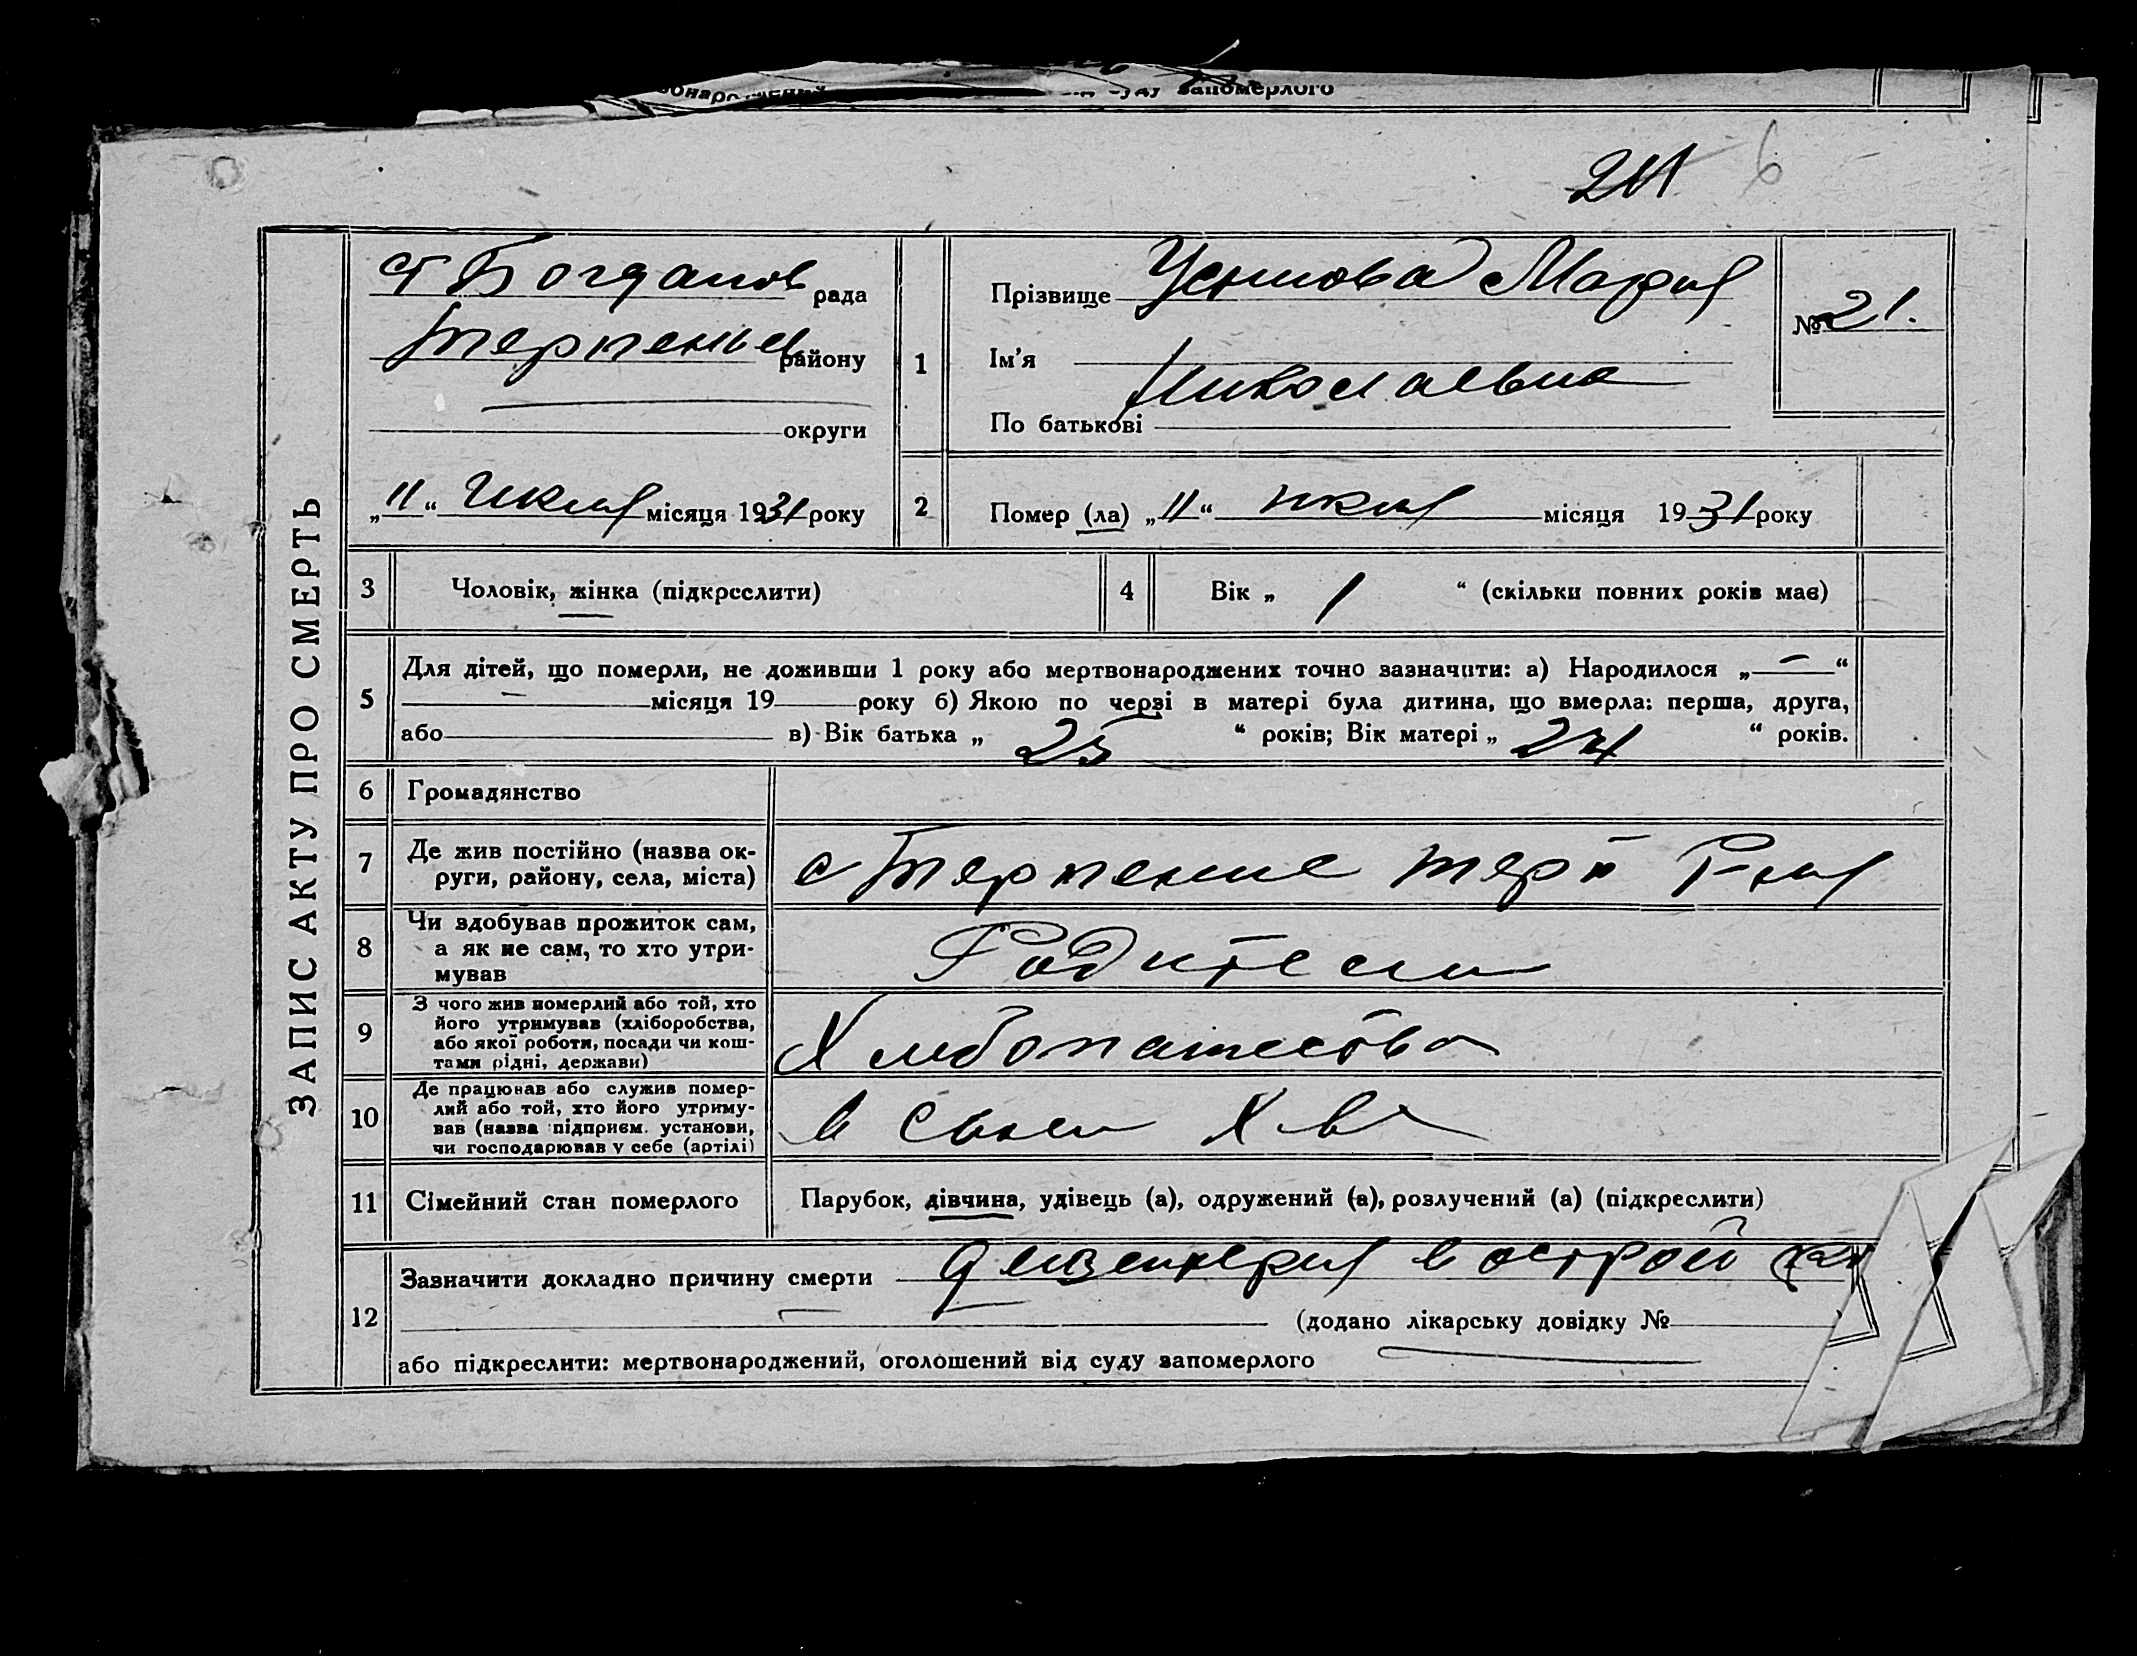 від суду запомерлого
211 6
ЗАПИС АКТУ ПРО СМЕРТЬ
ст Богданов рада
Терпения району
округи
„11“ июля місяця 1931 року
1
Прізвище Устинова Мария
Ім’я
Николаевна
По батькові
№ 21.
2 Помер (ла) „11“ июля місяця 1931 року
3 Чоловік, жінка (підкреслити)
4 Вік „ 1 “ (скільки повних років має)
5 Для дітей, що померли, не доживши 1 року або мертвонароджених точно зазначити: а) Народилося „ — “
— місяця 19 року б) Якою по черзі в матері була дитина, що вмерла: перша, друга,
або в) Вік батька „ 25 “ років; Вік матері „ 24 “ років.
6 Громадянство
7 Де жив постійно (назва округи, району, села, міста) с Терпение терп Р-на
8 Чи здобував прожиток сам, а як не сам, то хто утримував Родители
9 З чого жив померлий або той, хто його утримував (хліборобства, або якої роботи, посади чи коштами рідні, держави) Хлебопашество
10 Де працював або служив померлий або той, хто його утримував (назва підприєм. установи, чи господарював у себе (артілі) в своем Х-ве
11 Сімейний стан померлого Парубок, дівчина, удівець (а), одружений (а), розлучений (а) (підкреслити)
12 Зазначити докладно причину смерти дизентерия в острой
(додано лікарську довідку №
або підкреслити: мертвонароджений, оголошений від суду запомерлого